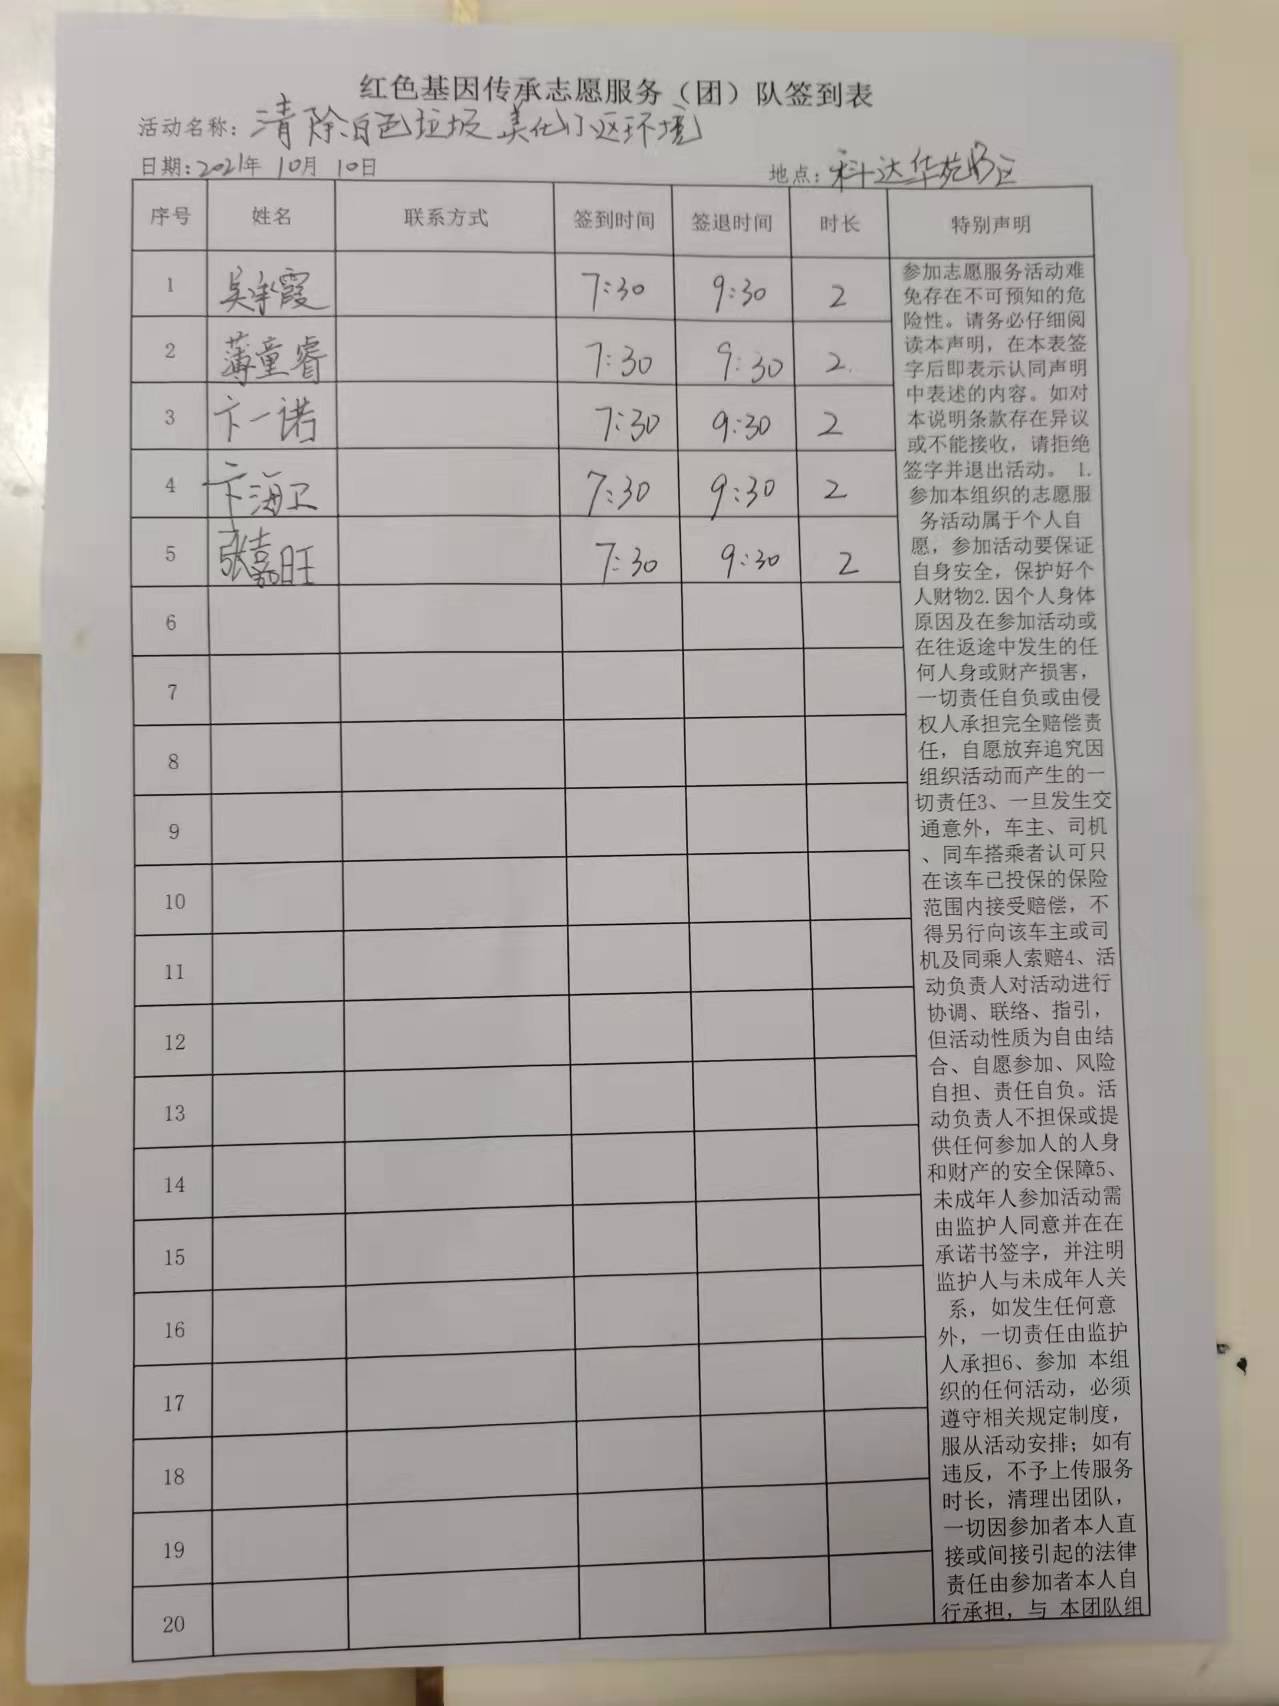 红色基因传承志愿服务（团）队签到表
活动名称：清除白色垃圾 美化小区环境
日期：2021年 10月 10日
地点：科达华苑
序号 姓名 联系方式 签到时间 签退时间 时长 特别声明
1 吴 霞 7:30 9:30 2
2 薄童睿 7:30 9:30 2
3 卞一诺 7:30 9:30 2
4 卞海卫 7:30 9:30 2
5 张嘉旺 7:30 9:30 2
6
7
8
9
10
11
12
13
14
15
16
17
18
19
20
参加志愿服务活动难
免存在不可预知的危
险性。请务必仔细阅
读本声明，在本表签
字后即表示认同声明
中表述的内容。如对
本说明条款存在异议
或不能接收，请拒绝
签字并退出活动。 1.
参加本组织的志愿服
务活动属于个人自
愿，参加活动要保证
自身安全，保护好个
人财物2.因个人身体
原因及在参加活动或
在往返途中发生的任
何人身或财产损害，
一切责任自负或由侵
权人承担完全赔偿责
任，自愿放弃追究因
组织活动而产生的一
切责任3、一旦发生交
通意外，车主、司机
、同车搭乘者认可只
在该车已投保的保险
范围内接受赔偿，不
得另行向该车主或司
机及同乘人索赔4、活
动负责人对活动进行
协调、联络、指引，
但活动性质为自由结
合、自愿参加、风险
自担、责任自负。活
动负责人不担保或提
供任何参加人的人身
和财产的安全保障5、
未成年人参加活动需
由监护人同意并在在
承诺书签字，并注明
监护人与未成年人关
系，如发生任何意
外，一切责任由监护
人承担6、参加 本组
织的任何活动，必须
遵守相关规定制度，
服从活动安排；如有
违反，不予上传服务
时长，清理出团队，
一切因参加者本人直
接或间接引起的法律
责任由参加者本人自
行承担，与 本团队组